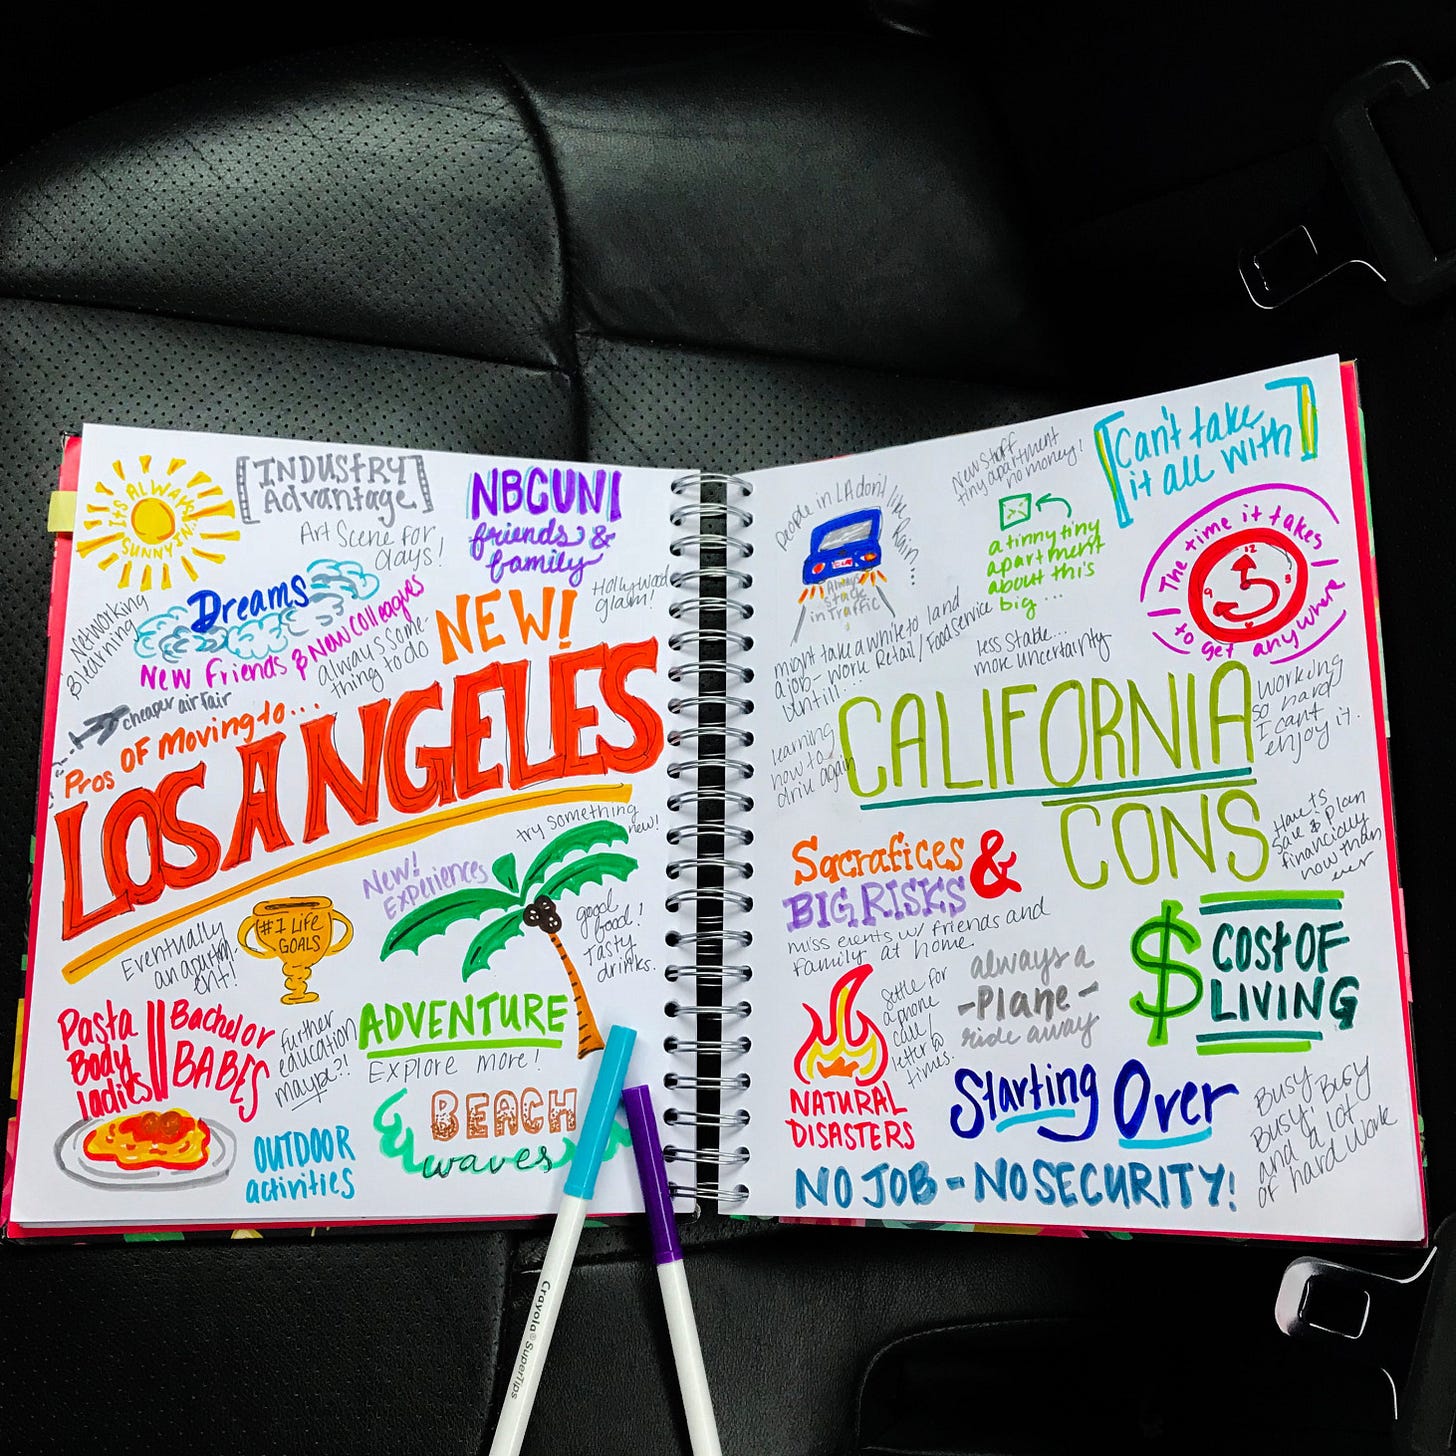 ITS ALWAYS
SUNNY IN
INDUSTRY
Advantage
Art Scene for
days!
NBCUNI
friends &
family
Networking
& learning
Dreams
New Friends & New Colleagues
always some-
thing to do
Hollywood
glam!
NEW!
cheaper air fair
Pros OF Moving to...
LOS ANGELES
try something
new!
New!
Experiences
Eventually
an apartm-
ent!
#1 Life
GOALS
good
food!
Tasty
drinks.
Pasta
Body
ladies
Bachelor
BABES
further
education
maybe?!
ADVENTURE
Explore more!
BEACH
waves
OUTDOOR
activities
People in LA don't like the Rain...
Always
stuck
in Traffic
New stuff
tiny apartment
no money!
a tinny tiny
apartment
about this
big...
Can't take
it all with
The time it takes
to get anywhere
12
3
6
9
might take a while to land
a job- work Retail/Foodservice
until...
less stable...
more uncertainty
learning
how to
drive again
CALIFORNIA
CONS
Working
so hard
I can't
enjoy it.
Have to
save & plan
financially
now than
ever
Sacrafices &
BIG RISKS
miss events w/ friends and
family at home.
Settle for
a phone
call/
letter @
times.
always a
-Plane-
ride away
$ COST OF
LIVING
NATURAL
DISASTERS
Starting Over
Busy Busy
Busy!
and a lot
of hard work
NO JOB - NO SECURITY!
Crayola® SuperTips